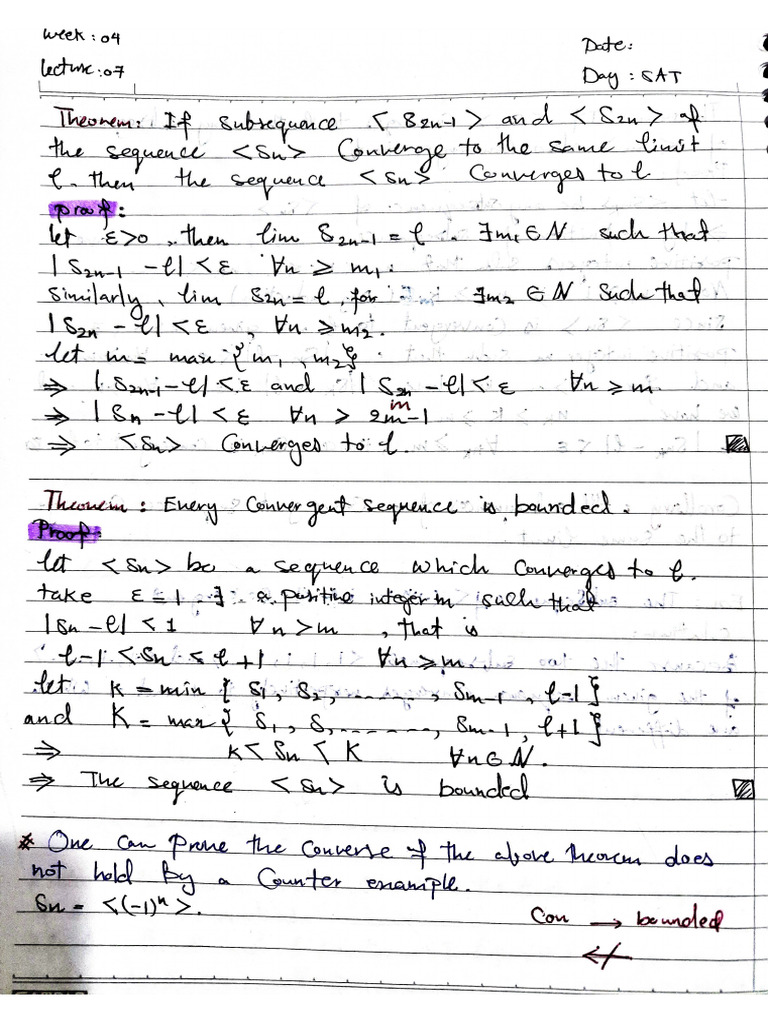 Week : 04
Date:
lecture : 07
Day : SAT
Theorem : If subsequence < S2n-1 > and < S2n > of
the sequence <Sn> Converge to the same limit
ℓ. then the sequence <Sn> Converges to ℓ
proof :
let ε>0 , then lim S2n-1 = ℓ ∴ ∃m1 ∈ N such that
| S2n-1 - ℓ| < ε ∀n ≥ m1 .
Similarly, lim S2n = ℓ, for ∃m2 ∈ N Such that
| S2n - ℓ| < ε , ∀n ≥ m2 .
let m = max {m1 , m2}
⇒ | S2n-1 - ℓ| < ε and | S2n - ℓ| < ε ∀n ≥ m
⇒ | Sn - ℓ| < ε ∀n > 2m-1
⇒ <Sn> Converges to ℓ.
Theorem : Every Convergent sequence is bounded .
Proof:
let <Sn> be a sequence which Converges to ℓ.
take ε = 1 ∃ a positive integer m such that
|Sn - ℓ| < 1 ∀n > m , that is
ℓ-1 < Sn < ℓ+1 ∀n ≥ m
let k = min { S1 , S2 , ......., Sm-1 , ℓ-1 }
and K = max { S1 , S, ........, Sm-1 , ℓ+1 }
⇒ k < Sn < K ∀n ∈ N .
⇒ The sequence <Sn> is bounded
* One can prove the Converse of the above theorem does
not hold By a Counter example.
Sn = <(-1)^n>.
Con → bounded
↚